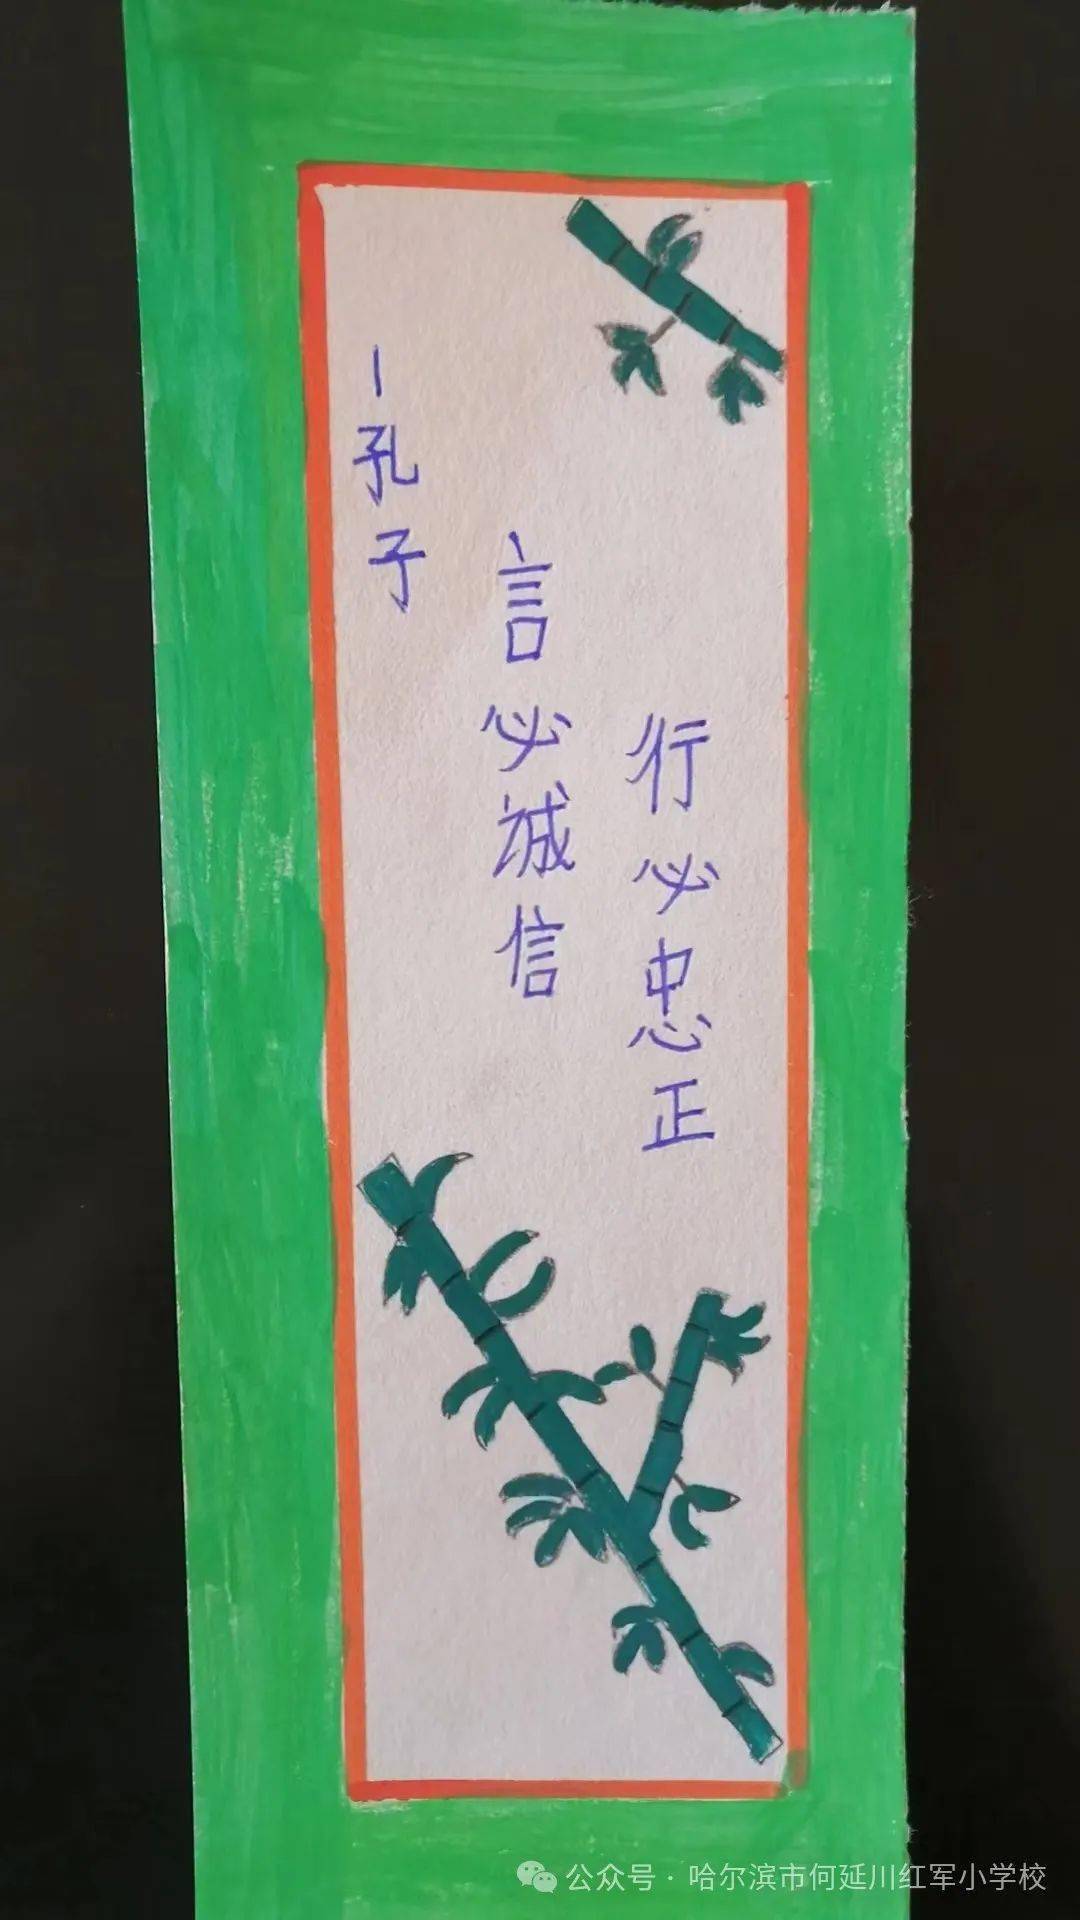 行必忠正
言必诚信
一孔子
公众号·哈尔滨市何延川红军小学校